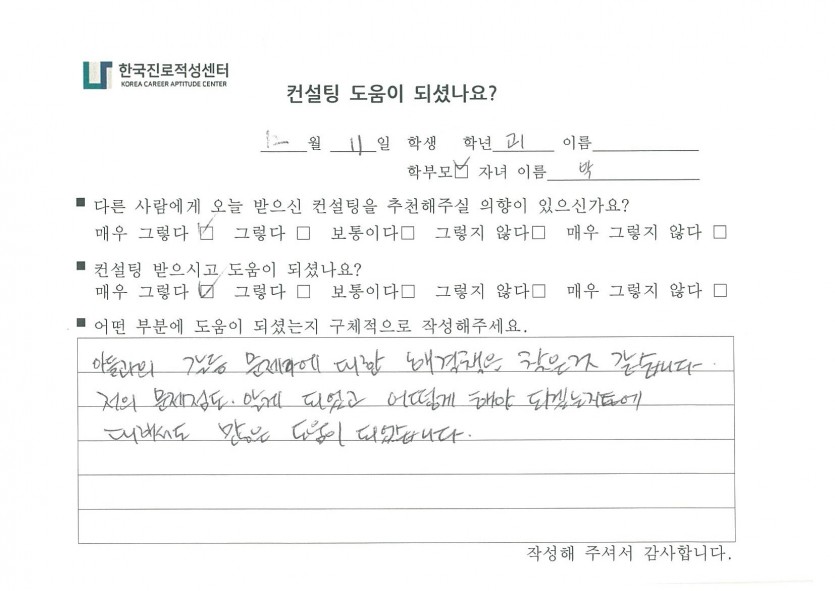 한국진로적성센터
KOREA CAREER APTITUDE CENTER
컨설팅 도움이 되셨나요?
12 월 11 일 학생 학년 고1 이름
학부모☑ 자녀 이름 박
■ 다른 사람에게 오늘 받으신 컨설팅을 추천해주실 의향이 있으신가요?
매우 그렇다 ☑ 그렇다 □ 보통이다□ 그렇지 않다□ 매우 그렇지 않다 □
■ 컨설팅 받으시고 도움이 되셨나요?
매우 그렇다 ☑ 그렇다 □ 보통이다□ 그렇지 않다□ 매우 그렇지 않다 □
■ 어떤 부분에 도움이 되셨는지 구체적으로 작성해주세요.
아들과의 갈등 문제에 대한 해결책을 찾은거 같습니다.
저의 문제점도 알게 되었고 어떻게 해야 되겠는지도에
대해서도 많은 도움이 되었습니다.
작성해 주셔서 감사합니다.